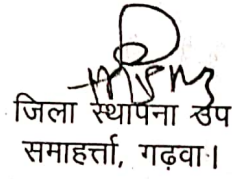 जिला स्थापना उप
समाहर्त्ता, गढ़वा।